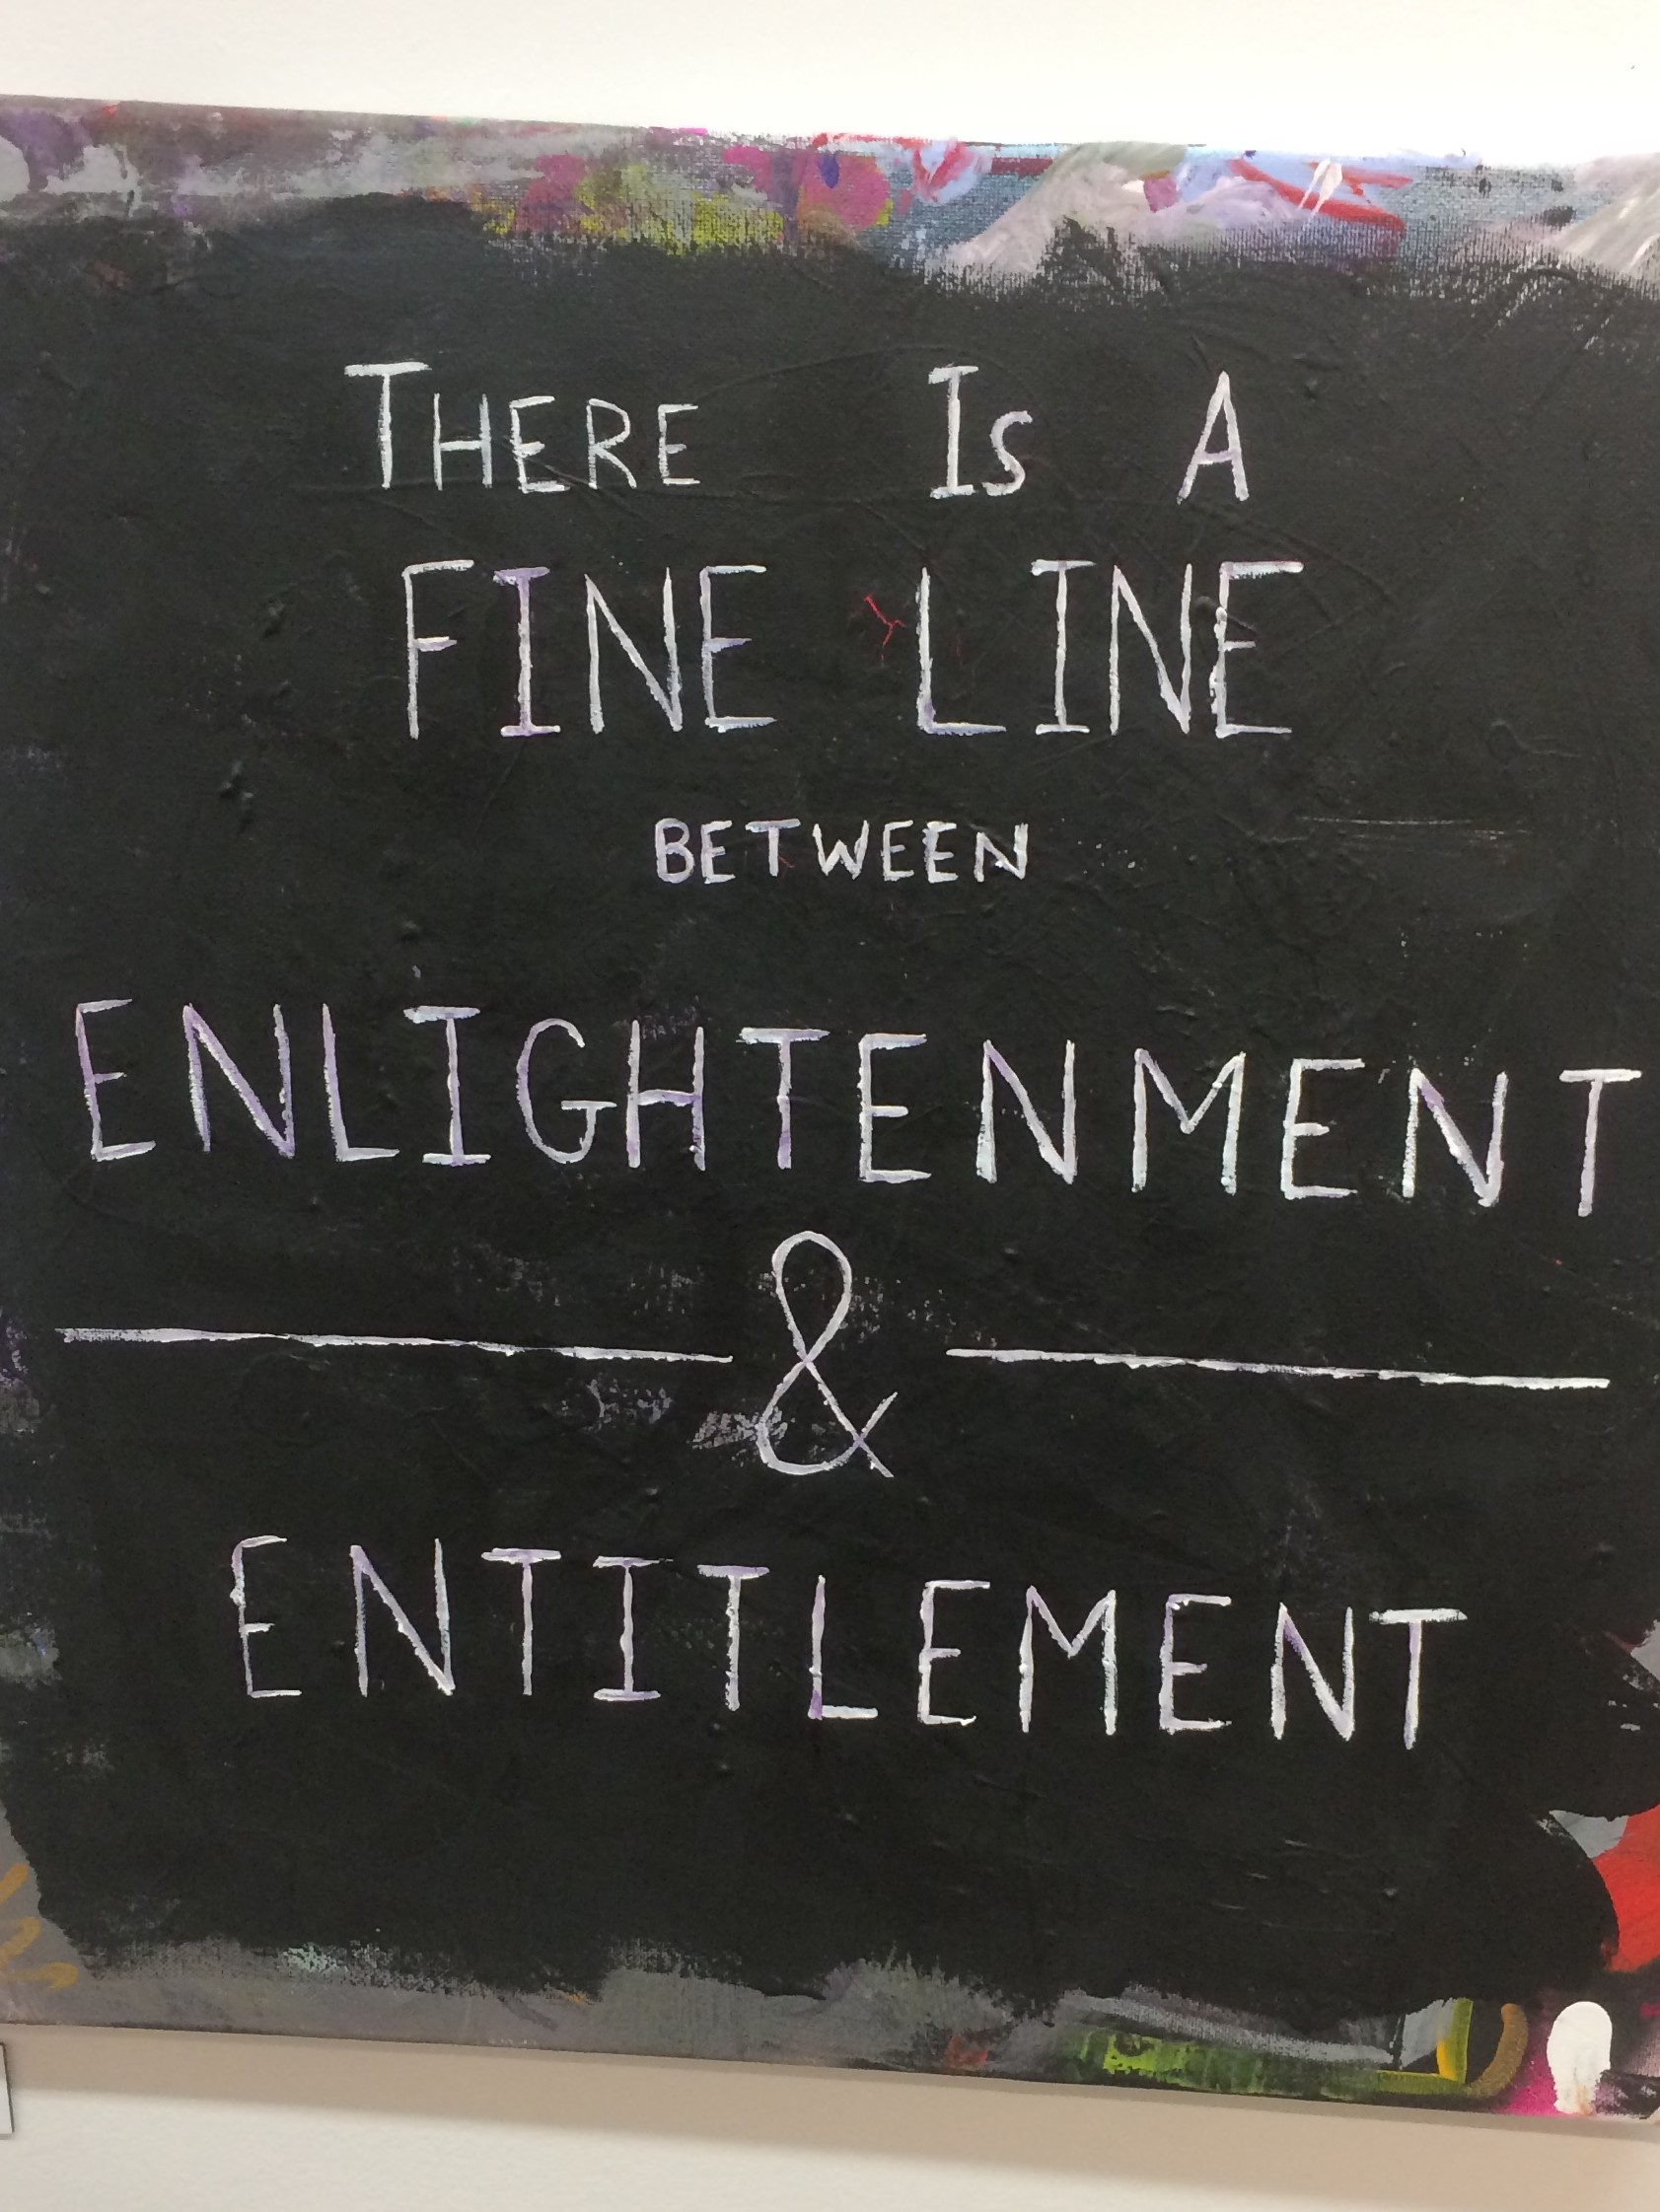 THERE IS A
FINE LINE
BETWEEN
ENLIGHTENMENT
&
ENTITLEMENT